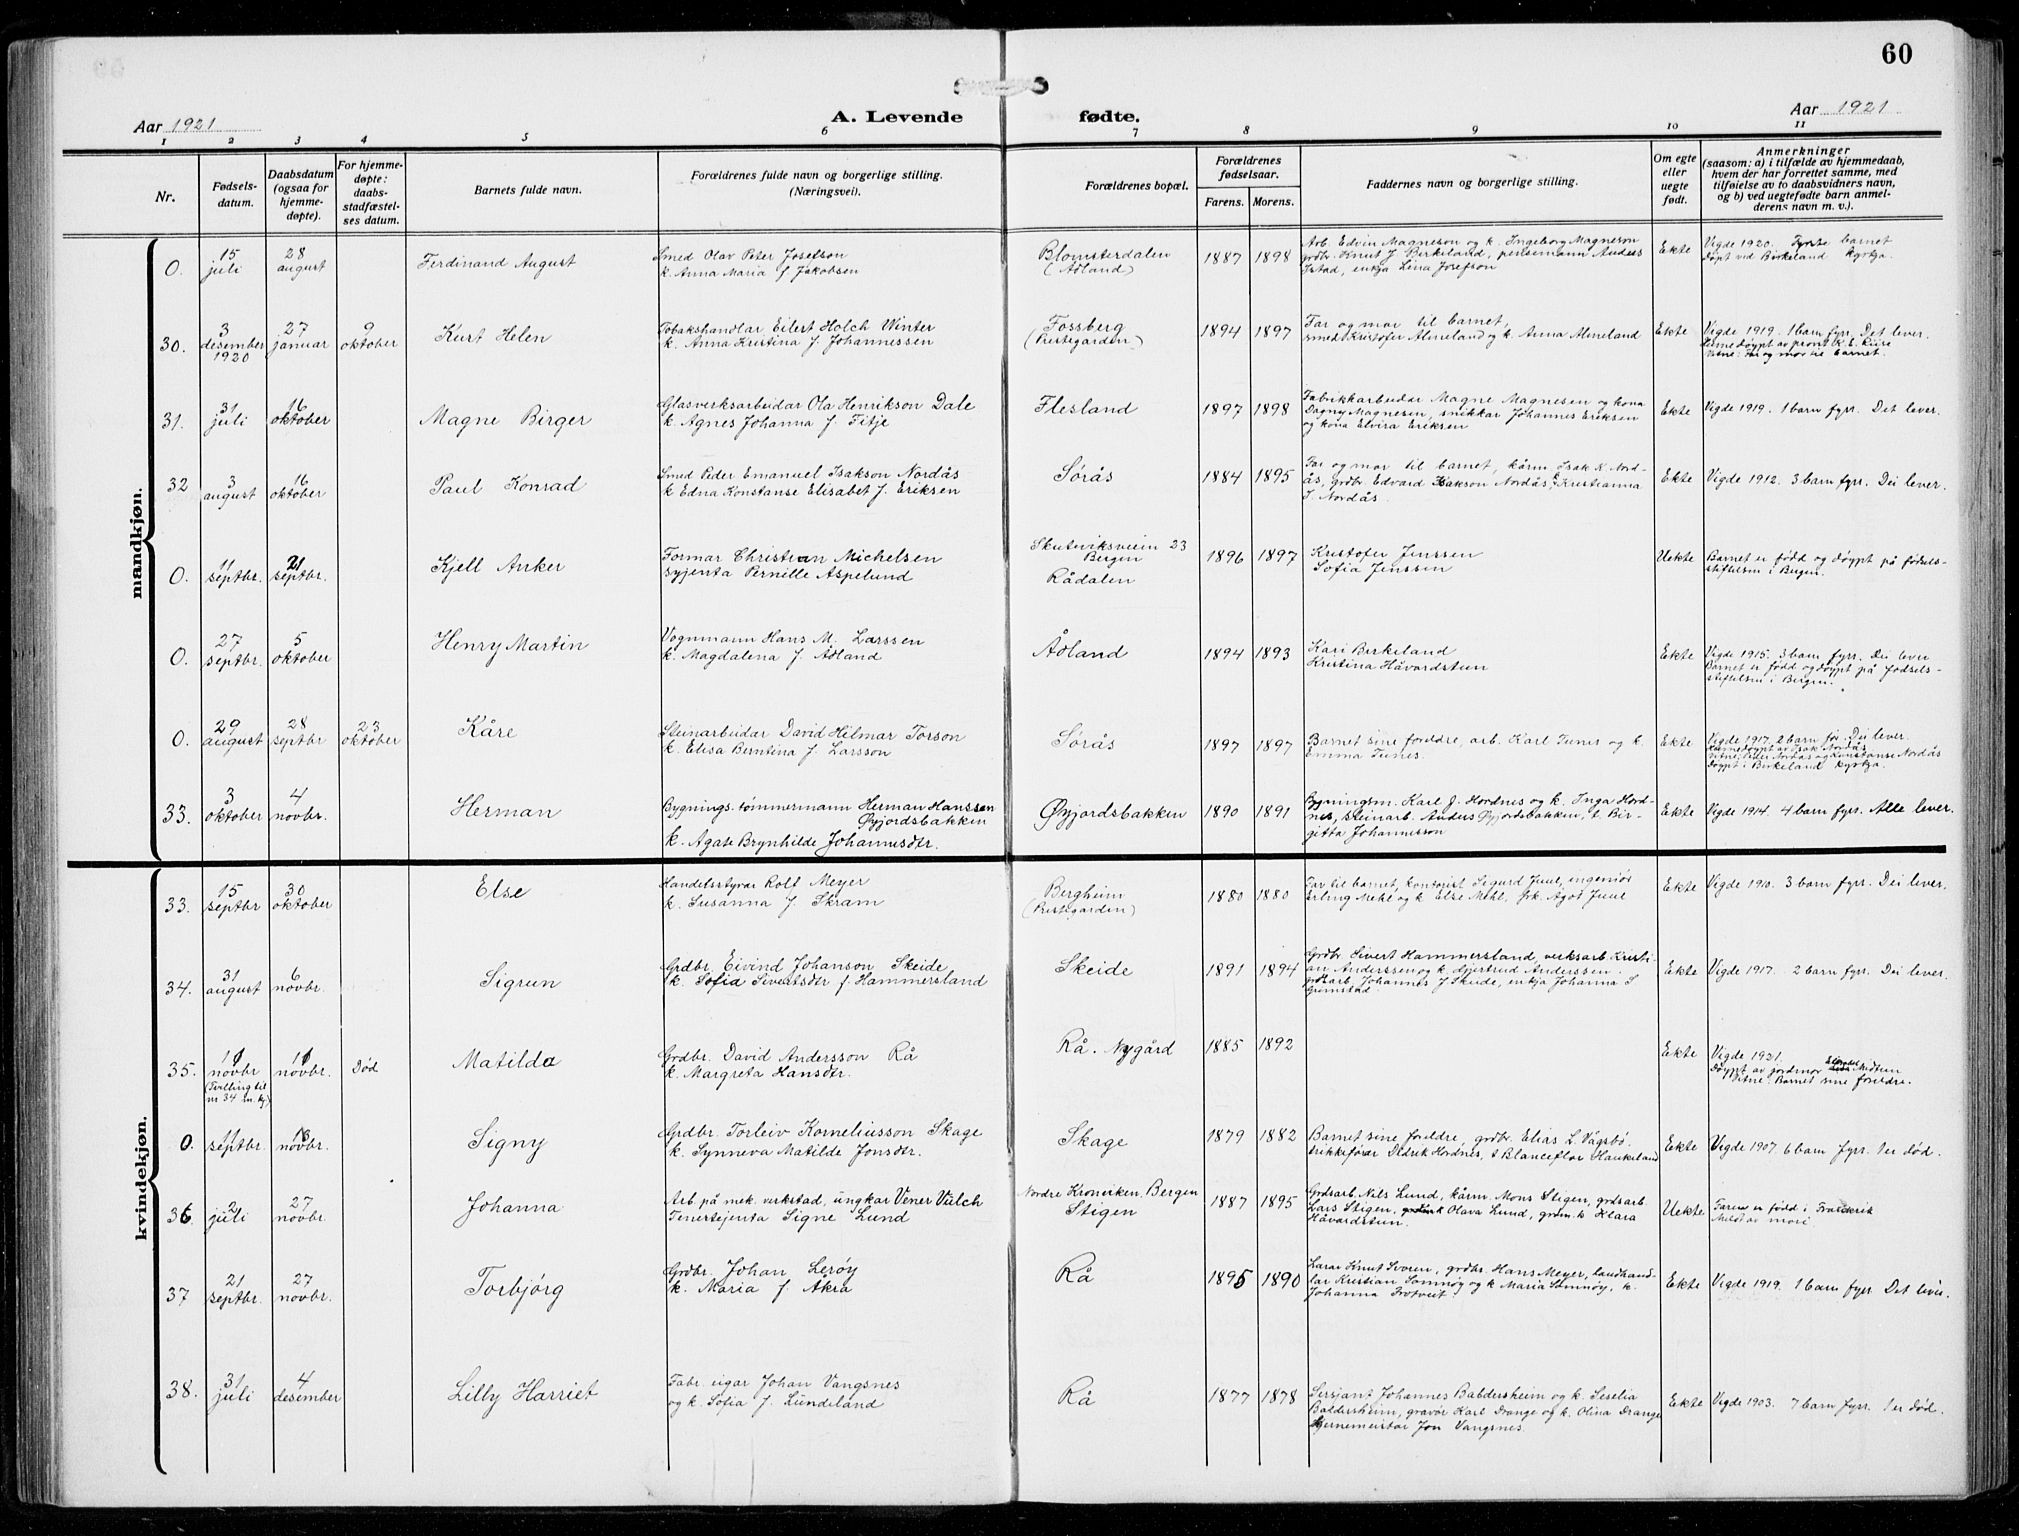 60
Aar 1921
A. Levende fødte.
Aar 1921
1 2 3 4 5 6 7 8 9 10 11
Nr.
Fødsels-
datum.
Daabsdatum
(ogsaa for
hjemme-
døpte).
For hjemme-
døpte:
daabs-
stadfæstel-
ses datum.
Barnets fulde navn.
Forældrenes fulde navn og borgerlige stilling.
(Næringsvei).
Forældrenes bopæl.
Forældrenes
fødselsaar.
Farens. Morens.
Faddernes navn og borgerlige stilling.
Om egte
eller
uegte
født.
Anmerkninger
(saasom: a) i tilfælde av hjemmedaab,
hvem der har forrettet samme, med
tilføielse av to daabsvidners navn,
og b) ved uegtefødte barn anmel-
derens navn m. v.).
mandkjøn.
0.
15
juli
28
august
Ferdinand August
Smed Olav Peter Josefson
k. Anna Maria f. Jakobsen
Blomsterdalen
(Ådland)
1887 1898
Arb. Edvin Magneson og k. Ingeborg Magneson
grdbr. Knut J. Birkeland, pensemann Anders
Istad, enkja Lina Josefson
Ekte
Vigde 1920. Fyrste barnet
døpt ved Birkeland kyrkja.
30.
3
desember
1920
27
januar
9
oktober
Kurt Helen
Tobakshandlar Eilert Holch Winter
k. Anna Kristina f. Johannessen
Fossberg
(Prestegarden)
1894 1897
Far og mor til barnet,
smed Kristofer Almeland og k. Anna Almeland
Ekte
Vigde 1919. 1 barn fyrr. Det lever.
Heimedøypt av prost K. E. Riise
Vitne: Far og mor til barnet.
31.
31
juli
16
oktober
Magne Birger
Glasverksarbeidar Ola Henrikson Dale
k. Agnes Johanna f. Titje
Flesland
1897 1898
Fabrikkarbeidar Magne Magnesen og kona
Dagny Magnesen, snikkar Johannes Eriksen
og kona Elvira Eriksen
Ekte
Vigde 1919. 1 barn fyrr. Det lever.
32
3
august
16
oktober
Paul Konrad
Smed Peder Emanuel Isakson Nordås
k Edna Konstanse Elisabet f. Eriksen
Sørås
1884 1895
Far og mor til barnet, kårm. Isak K. Nord-
ås, grdbr. Edvard Isakson Nordås, Kristianna
I. Nordås.
Ekte
Vigde 1912. 3 barn fyrr. Dei lever.
0.
11
septbr.
21
septbr.
Kjell Anker
Formar Christian Michelsen
syjenta Pernille Aspelund
Skuteviksveien 23
Bergen
Rådalen
1896 1897
Kristofer Jenssen
Sofia Jenssen
Uekte
Barnet er fødd og døypt på fødsels-
stiftelsen i Bergen.
0.
27
septbr.
5
oktober
Henry Martin
Vognmann Hans M. Larssen
k. Magdalena f. Ådland
Ådland
1894 1893
Kari Birkeland
Kristina Håvardstun
Ekte
Vigde 1915. 3 barn fyrr. Dei lever
Barnet er fødd og døypt på fødsels-
stiftelsen i Bergen.
0.
29
august
28
septbr
23
oktober
Kåre
Steinarbeidar David Hilmar Torson
k. Elisa Berntina f. Larsson
Sørås
1897 1897
Barnet sine foreldre, arb. Karl Tunes og k.
Emma Tunes.
Ekte
Vigde 1917. 2 barn før. Dei lever.
Heimedøypt av Isak Nordås
Vitne: Peder Nordås og Konstanse Nordås
Døypt i Birkeland kyrkja.
33.
3
oktober
4
novbr.
Herman
Bygnings.tømmermann Herman Hanssen
Øyjordsbakken
k. Agate Brynhilde Johannesdtr.
Øyjordsbakken
1890 1891
Bygningsm. Karl J. Hordnes og k. Inga Hord-
nes, steinarb. Anders Øyjordsbakken, t. Bir-
gitta Johannesson
Ekte
Vigde 1914. 4 barn fyrr. Alle lever.
kvindekjøn.
33.
15
septbr
30
oktober
Else
Handelsstyrar Rolf Meyer
k. Susanna f. Skram
Bergheim
(Prestegarden)
1880 1880
Far til barnet, kontorist Sigurd Juul, ingeniør
Erling Mehl og k Else Mehl, frk. Agot Juul
Ekte
Vigde 1910. 3 barn fyrr. Dei lever.
34.
31
august
6
novbr.
Sigrun
Grdbr. Eivind Johanson Skeide
k. Sofia Sivertsdtr f. Hammersland
Skeide
1891 1894
Grdbr. Sivert Hammersland, verksarb. Kristi-
an Anderssen og k. Gjertrud Anderssen.
grdarb. Johannes J Skeide, enkja Johanna S
Grimstad.
Ekte
Vigde 1917. 2 barn fyrr. Dei lever.
35.
novbr
(Tvilling til
nr 34 m. kj)
novbr.
Død
Matilda
Grdbr. David Andersson Rå
k. Margreta Hansdtr.
Rå. Nygård
1885 1892
Ekte
Vigde 1921.
Døypt av jordmor Midtun
Vitne: Barnet sine foreldre.
0.
11
septbr
13
novbr.
Signy
Grdbr. Torleiv Korneliusson Skage
k. Synneva Matilde Jonsdtr.
Skage
1879 1882
Barnet sine foreldre, grdbr. Elias L. Vågsbø.
trikkefører Eldrik Hordnes, t Blanceflor Haukeland
Ekte
Vigde 1907. 6 barn fyrr. 1 er død.
36.
2
juli
27
novbr.
Johanna
Arb. på mek. verkstad, ungkar Vener Välch
Tenestejenta Signe Lund
Nordre Kroneiken, Bergen
Stigen
1887 1895
Grdsarb. Nils Lund, kårm. Mons Stigen, grdsarb.
Lars Stigen, k Olava Lund, grdm.k Klara
Håvardstun.
Uekte
Faren er fødd i Fredrik
Meldt av mori
37
21
septbr.
27
novbr.
Torbjørg
Grdbr. Johan Lerøy
k. Maria f. Åkra
Rå
1895 1890
Lærar Knut Svoren, grdbr. Hans Meyer, landhand-
lar Kristian Sømnøy og k Maria Sømnøy, k.
Johanna Trotveit.
Ekte
Vigde 1919. 1 barn fyrr Det lever.
38.
31
juli
4
desember
Lilly Harriet
Fabr. eigar Johan Vangsnes
og k. Sofia f. Lundeland
Rå
1877 1878
Sersjant Johannes Baldersheim og k. Seselia
Baldersheim, gravør Karl Drange og k. Olina Drange
Gjernemeistar Jon Vangsnes.
Ekte
Vigde 1903. 7 barn fyrr. 1 er død.